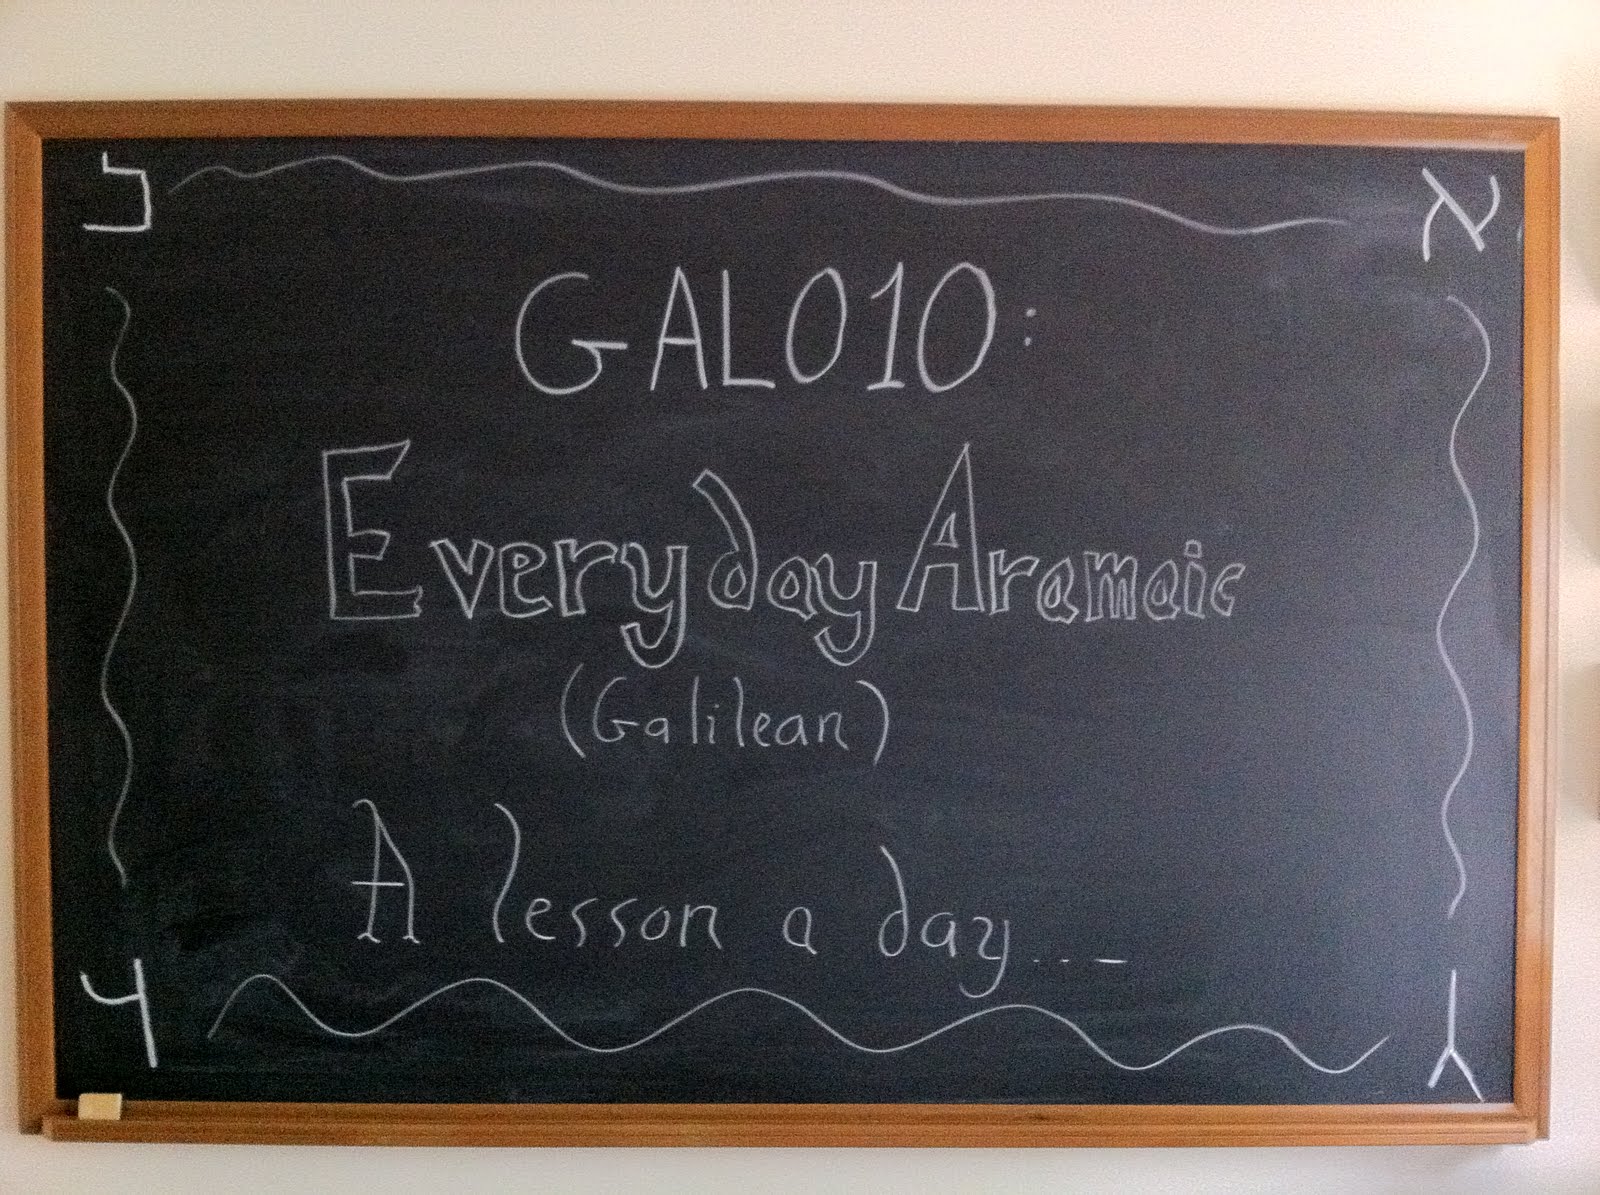 א ב
GAL010:
Everyday Aramaic
(Galilean)
A lesson a day...
ג ד